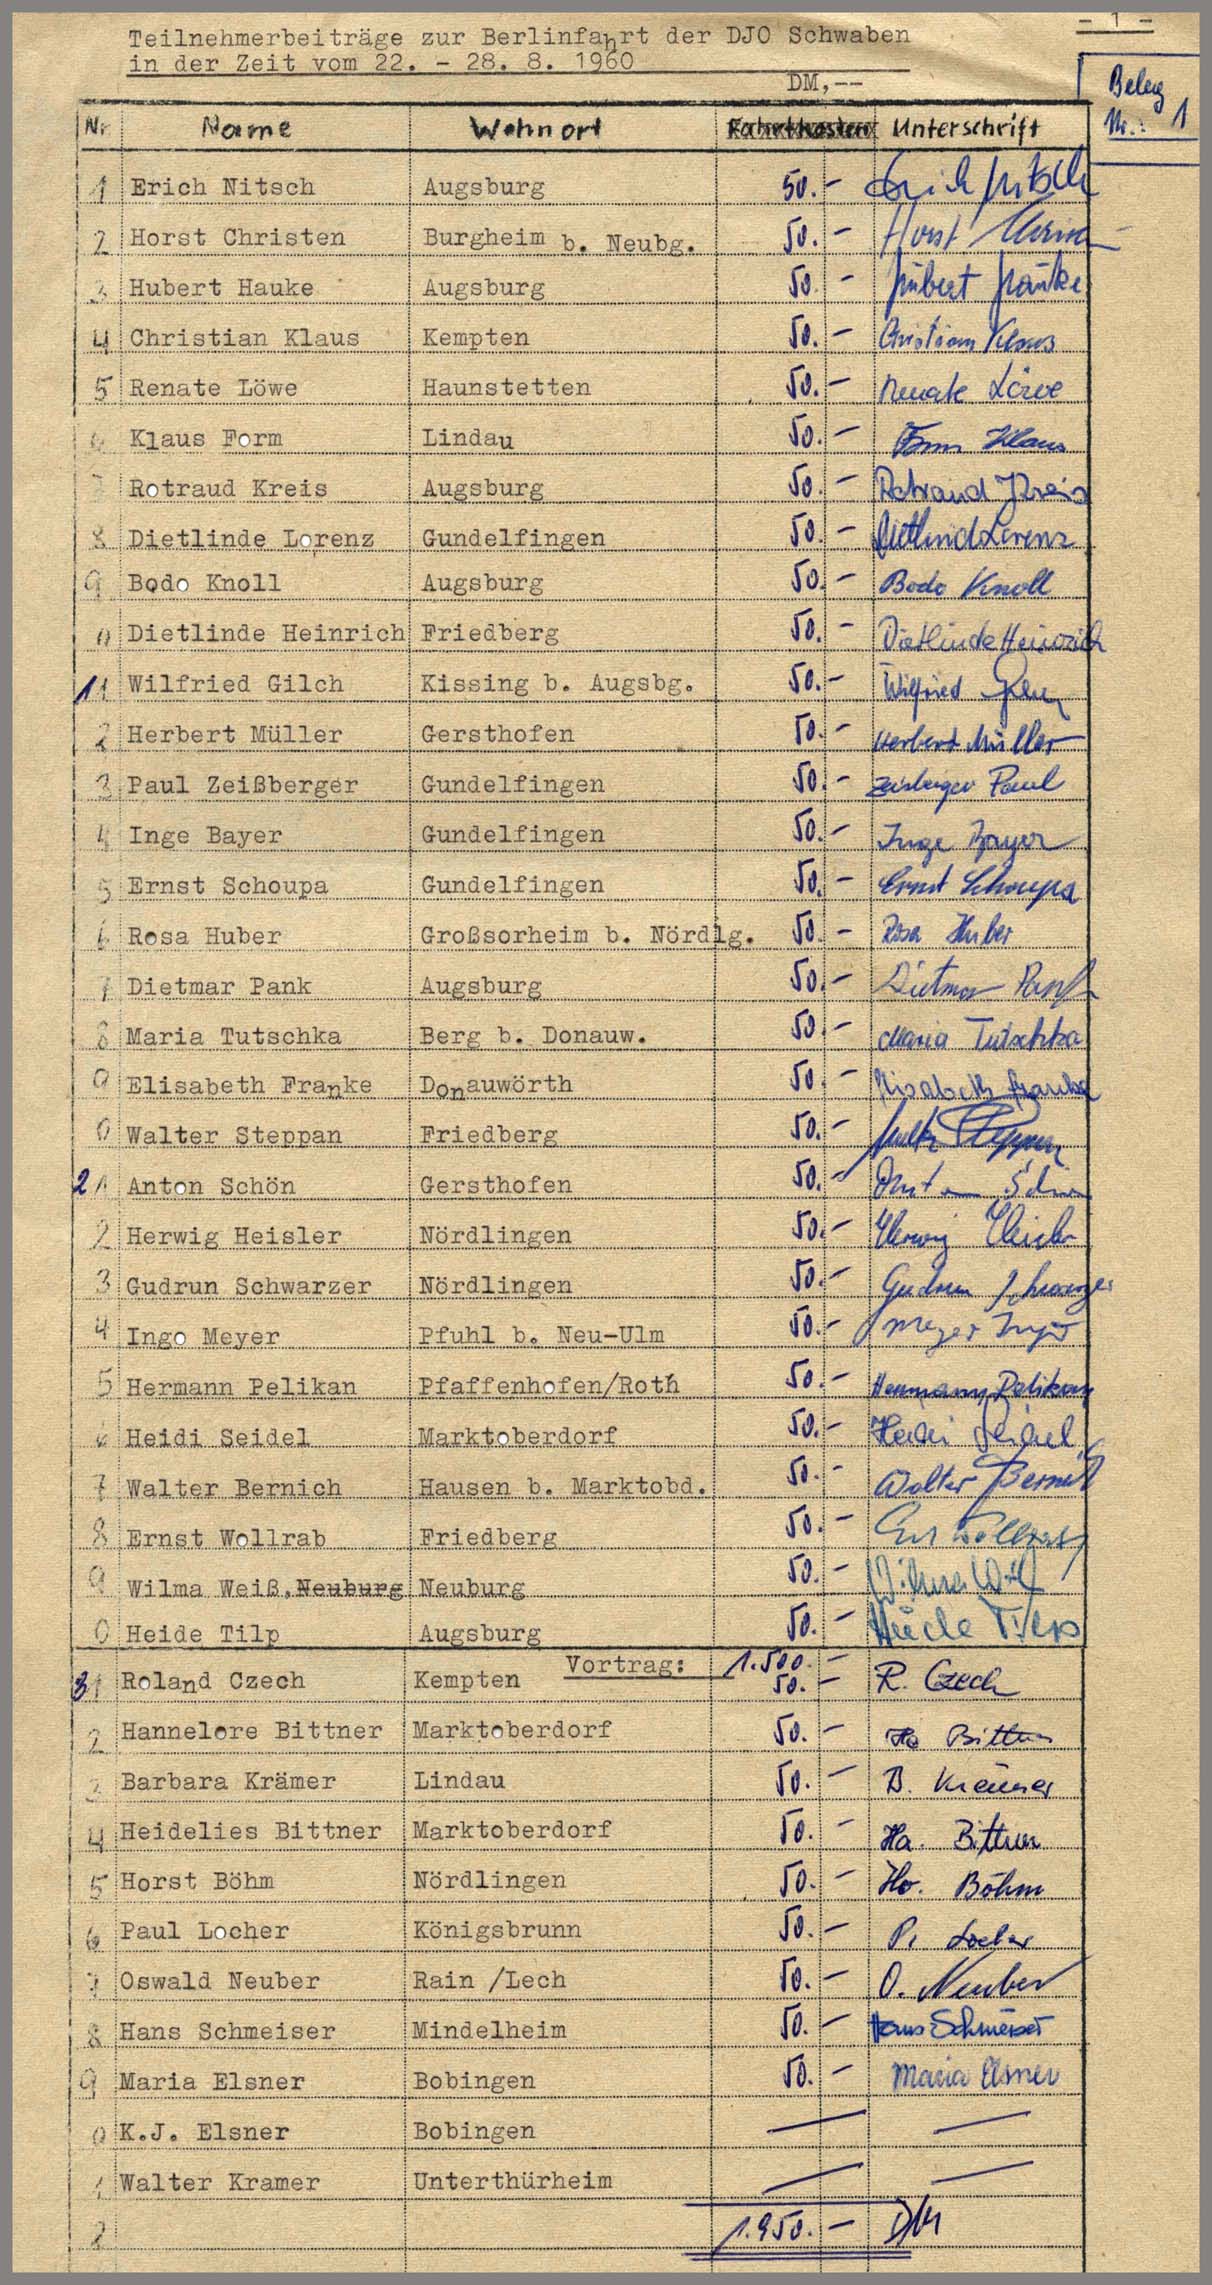 - 1 -
Teilnehmerbeiträge zur Berlinfahrt der DJO Schwaben
in der Zeit vom 22. - 28. 8. 1960
DM,--
Beleg
Nr.: 1
Nr Name Wohnort Fahrtkosten Unterschrift
1 Erich Nitsch Augsburg 50.- Erich Nitsch
2 Horst Christen Burgheim b. Neubg. 50.- Horst
3 Hubert Hauke Augsburg 50.- Hubert Hauke
4 Christian Klaus Kempten 50.- Christian Klaus
5 Renate Löwe Haunstetten 50.- Renate Löwe
6 Klaus Form Lindau 50.- Form Klaus
7 Rotraud Kreis Augsburg 50.- Rotraud Kreis
8 Dietlinde Lorenz Gundelfingen 50.- Dietlind Lorenz
9 Bodo Knoll Augsburg 50.- Bodo Knoll
0 Dietlinde Heinrich Friedberg 50.- Dietlinde Heinrich
11 Wilfried Gilch Kissing b. Augsbg. 50.- Wilfried
2 Herbert Müller Gersthofen 50.- Herbert Müller
3 Paul Zeißberger Gundelfingen 50.- Zeisberger Paul
4 Inge Bayer Gundelfingen 50.- Inge Bayer
5 Ernst Schoupa Gundelfingen 50.- Ernst Schoupa
6 Rosa Huber Großsorheim b. Nördlg. 50.- Rosa Huber
7 Dietmar Pank Augsburg 50.- Dietmar Pank
8 Maria Tutschka Berg b. Donauw. 50.- Maria Tutschka
9 Elisabeth Franke Donauwörth 50.- Elisabeth Franke
0 Walter Steppan Friedberg 50.- Walter Steppan
21 Anton Schön Gersthofen 50.- Anton Schön
2 Herwig Heisler Nördlingen 50.- Herwig Heisler
3 Gudrun Schwarzer Nördlingen 50.- Gudrun Schwarzer
4 Ingo Meyer Pfuhl b. Neu-Ulm 50.- Meyer Ingo
5 Hermann Pelikan Pfaffenhofen/Roth 50.- Hermann Pelikan
6 Heidi Seidel Marktoberdorf 50.- Heidi Seidel
7 Walter Bernich Hausen b. Marktobd. 50.- Walter Bernich
8 Ernst Wollrab Friedberg 50.- Ernst Wollrab
9 Wilma Weiß, Neuburg Neuburg 50.- Wilma Weiß
0 Heide Tilp Augsburg 50.- Heide Tilp
Vortrag: 1.500.-
31 Roland Czech Kempten 50.- R. Czech
2 Hannelore Bittner Marktoberdorf 50.- Ha Bittner
3 Barbara Krämer Lindau 50.- B. Krämer
4 Heidelies Bittner Marktoberdorf 50.- Ha. Bittner
5 Horst Böhm Nördlingen 50.- Ho. Böhm
6 Paul Locher Königsbrunn 50.- P. Locher
7 Oswald Neuber Rain /Lech 50.- O. Neuber
8 Hans Schmeiser Mindelheim 50.- Hans Schmeiser
9 Maria Elsner Bobingen 50.- Maria Elsner
0 K.J. Elsner Bobingen — —
1 Walter Kramer Unterthürheim — —
2 1.950.- DM